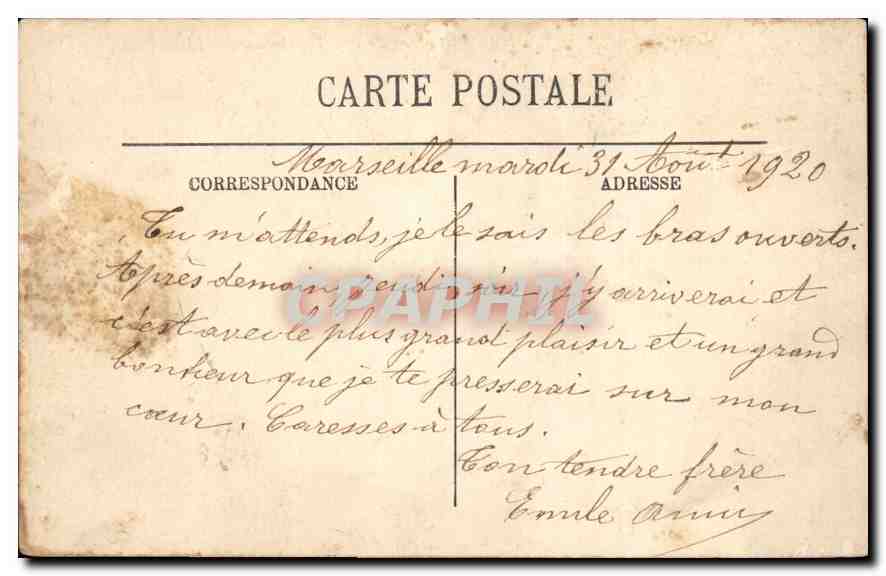 CARTE POSTALE
Marseille mardi 31 Août 1920
CORRESPONDANCE
ADRESSE
Tu m'attends, je le sais les bras ouverts.
Après demain, jeudi soir j'y arriverai et
c'est avec le plus grand plaisir et un grand
bonheur que je te presserai sur mon
cœur. Caresses à tous.
Ton tendre frère
Emile
CPAPHIL